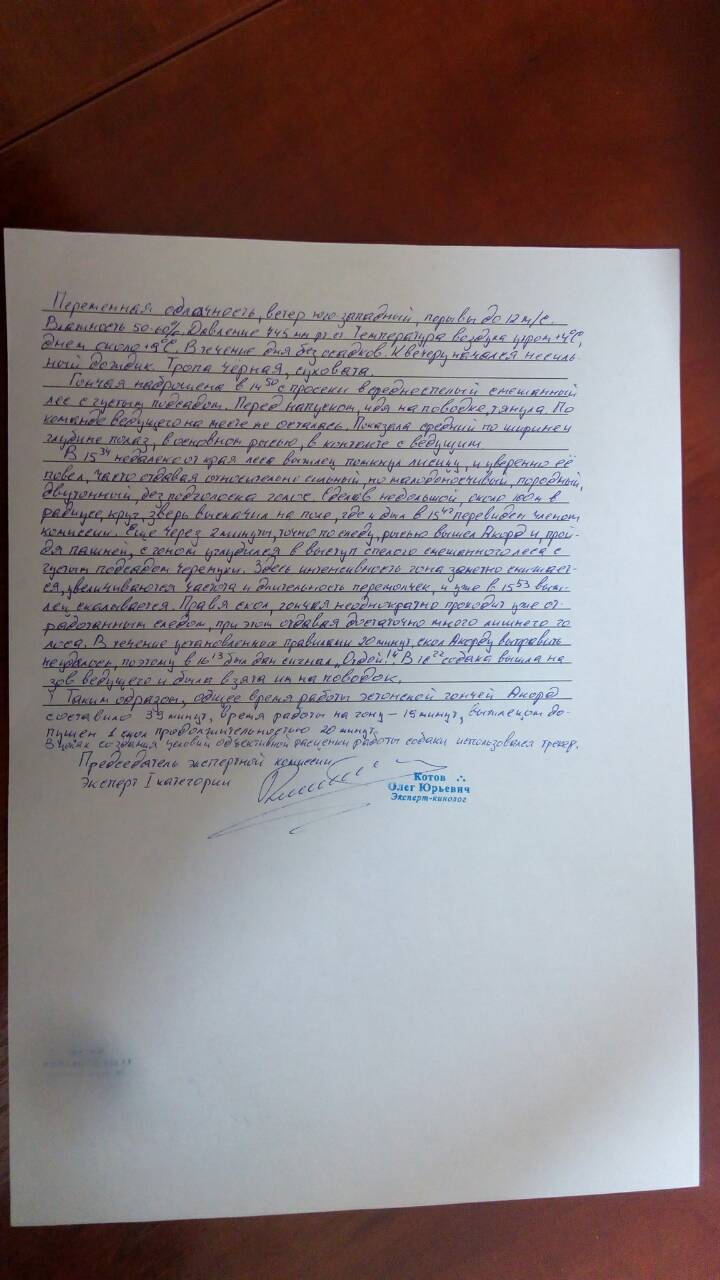 Переменная облачность, ветер юго-западный, порывы до 12 м/с.
Влажность 50-60%. Давление 745 мм рт ст Температура воздуха утром +4°С,
днем около +9°С. В течение дня без осадков. К вечеру начался несиль-
ный дождик. Тропа чёрная, суховата.
Гончая наброшена в 14 50 с просеки в среднеспелый смешанный
лес с густым подсадом. Перед напуском, идя на поводке, тянула. По
команде ведущего на месте не осталась. Показала средний по ширине и
глубине полаз, в основном рысью, в контакте с ведущим.
В 15 34 недалеко от края леса выжлец помкнул лисицу, и уверенно её
повел, часто отдавая относительно сильный, но малодоносчивый, породный,
двутонный, без подголоска голос. Сделав небольшой, около 100 м в
радиусе, круг, зверь выскочил на поле, где и был в 15 42 перевиден членом
комиссии. Еще через 2 минуты, точно по следу, рысью вышел Акорд и, прой-
дя пашней, с гоном углубился в выступ спелого смешанного леса с
густым подсадом черемухи. Здесь интенсивность гона заметно снижает-
ся, увеличиваются частота и длительность перемолчек, и уже в 15 53 выж-
лец скалывается. Правя скол, гончая неоднократно проходит уже от-
работанным следом, при этом отдавая достаточно много лишнего го-
лоса. В течение установленных правилами 20 минут, скол Акорду выправить
не удалось, поэтому в 16 13 был дан сигнал „Отбой!“ В 16 22 собака вышла на
зов ведущего и была взята им на поводок.
Таким образом, общее время работы эстонской гончей Акорд
составило 39 минут, время работы на гону – 19 минут, выжлецом до-
пущен 1 скол продолжительностью 20 минут.
В целях создания условий объективной расценки работы собаки использовался трекер.
Председатель экспертной комиссии
Эксперт I категории
Котов
Олег Юрьевич
Эксперт-кинолог